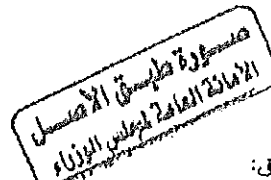 صورة طبق الأصل
الأمانة العامة لمجلس الوزراء